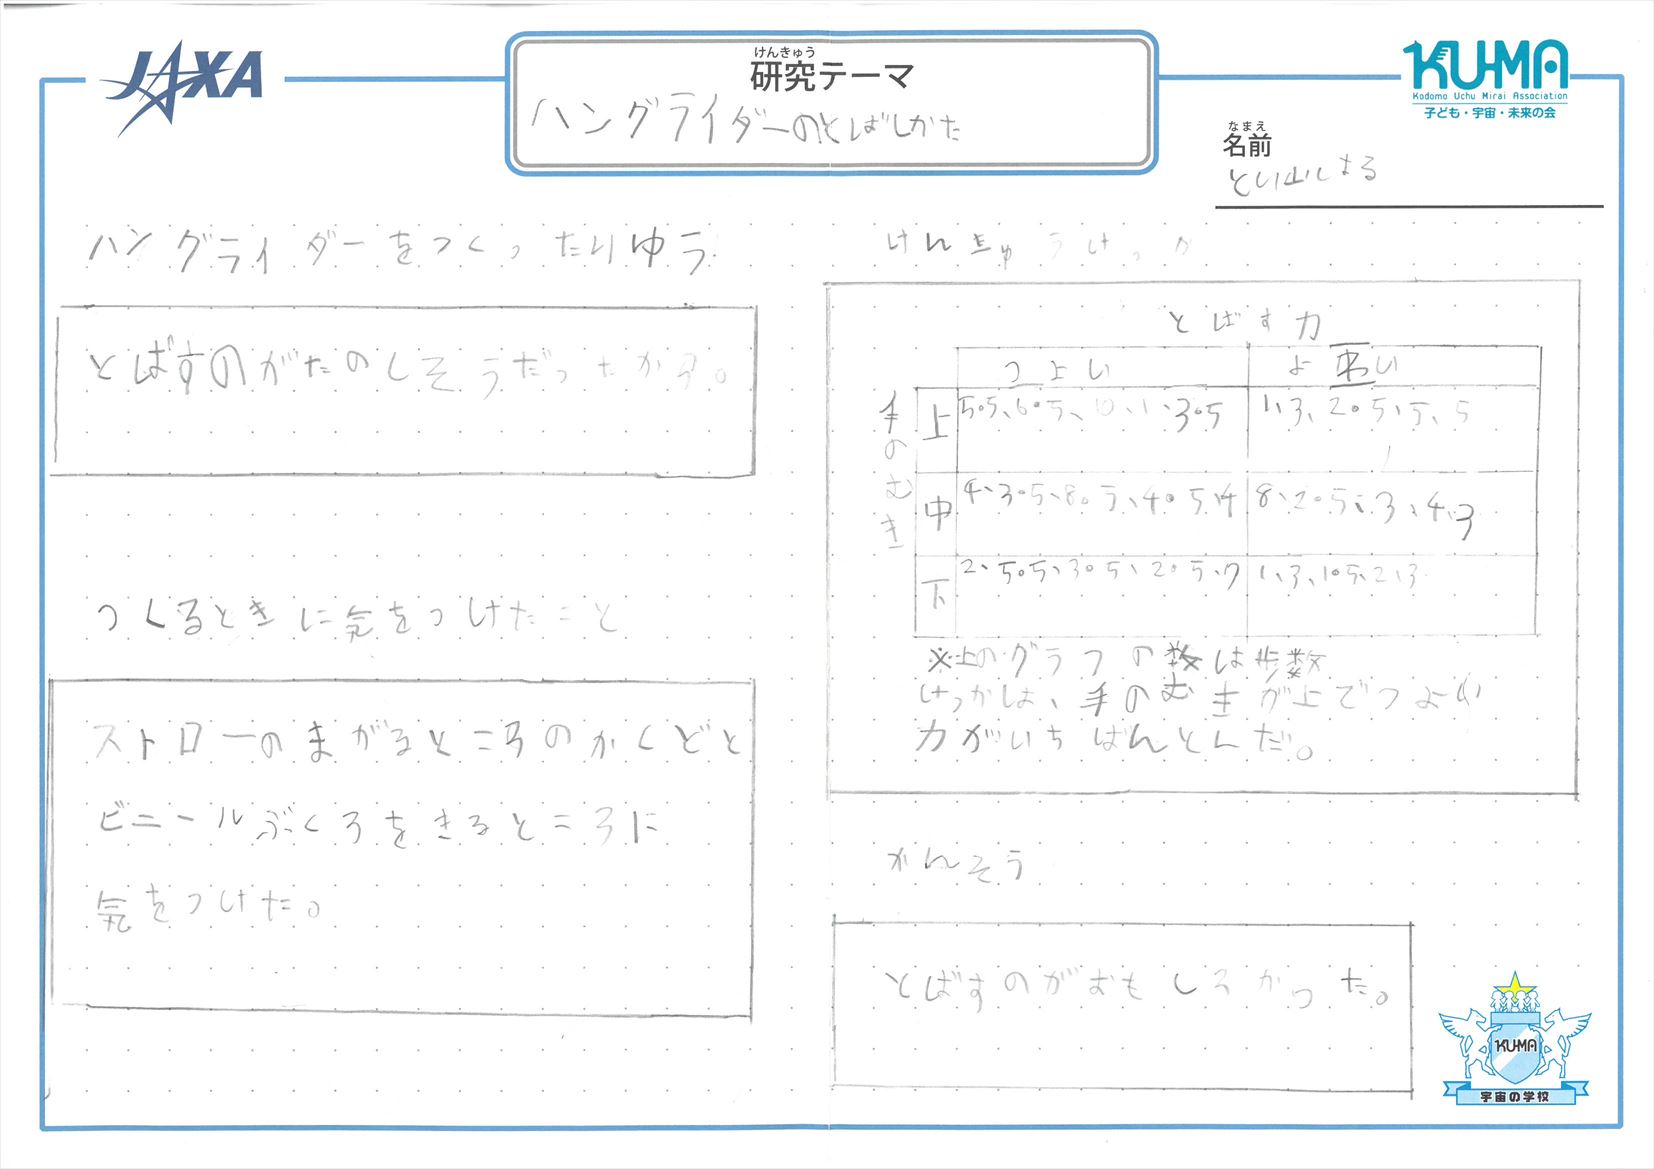 JAXA
けんきゅう
研究テーマ
ハングライダーのとばしかた
KU-MA
Kodomo Uchu Mirai Association
子ども・宇宙・未来の会
なまえ
名前
ハングライダーをつくったりゆう
とばすのがたのしそうだったから。
つくるときに気をつけたこと
ストローのまがるところのかくどと
ビニールぶくろをきるところに
気をつけた。
けんきゅうけっか
とばす力
つよい
よわい
手のむき
上
5.5、6.5、10、1、3.5
1、3、2.5、5、5
中
4、3.5、8.5、4.5、4
8、2.5、3、4、3
下
2、5.5、3.5、2.5、7
1、3、1.5、2、3
※上のグラフの数は歩数
けっかは、手のむきが上でつよい
力がいちばんとんだ。
かんそう
とばすのがおもしろかった。
KU-MA
宇宙の学校